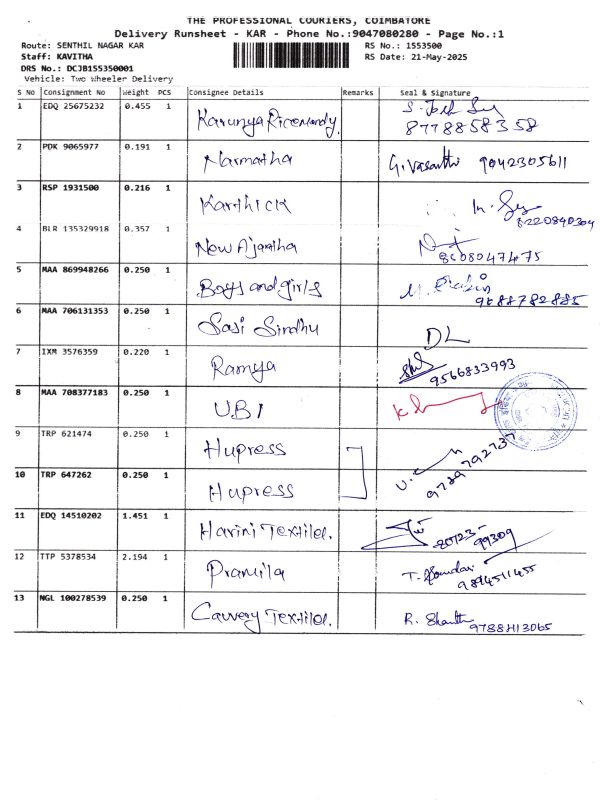 THE PROFESSIONAL COURIERS, COIMBATORE
Delivery Runsheet - KAR - Phone No.:9047080280 - Page No.:1
Route: SENTHIL NAGAR KAR
RS No.: 1553500
Staff: KAVITHA
RS Date: 21-May-2025
DRS No.: DCJB155350001
Vehicle: Two Wheeler Delivery
S No Consignment No Weight PCS Consignee Details Remarks Seal & Signature
1 EDQ 25675232 0.455 1 Karunya Ricemandy.
8778858358
2 PDK 9065977 0.191 1 Narmatha G. Vasanthi 9042305611
3 RSP 1931500 0.216 1 Karthick
8220840304
4 BLR 135329918 0.357 1 New Ajantha
5 MAA 869948266 0.250 1 Boys and girls
9688782885
6 MAA 706131353 0.250 1 Sasi Sindhu DL
7 IXM 3576359 0.220 1 Ramya
9566833993
8 MAA 708377183 0.250 1 UBI
9 TRP 621474 0.250 1 Hupress
9789792737
10 TRP 647262 0.250 1 Hupress
11 EDQ 14510202 1.451 1 Harini Textiles.
80723-
99309
12 TTP 5378534 2.194 1 Pramila
9894511455
13 NGL 100278539 0.250 1 Cauvery Textiles. R. Shanthi
9788413065